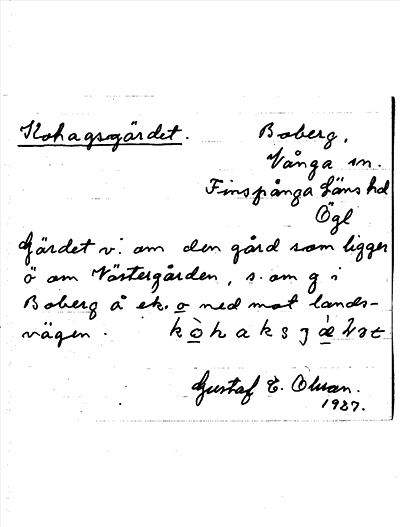 Kohagsgärdet.
Boberg,
Vånga sn.
Finspånga läns hd
Ögl
Gärdet v. om den gård som ligger
ö om Västergården, s. om g i
Boberg å ek. o ned mot lands-
vägen.
Gustaf E. Olsson.
1927.